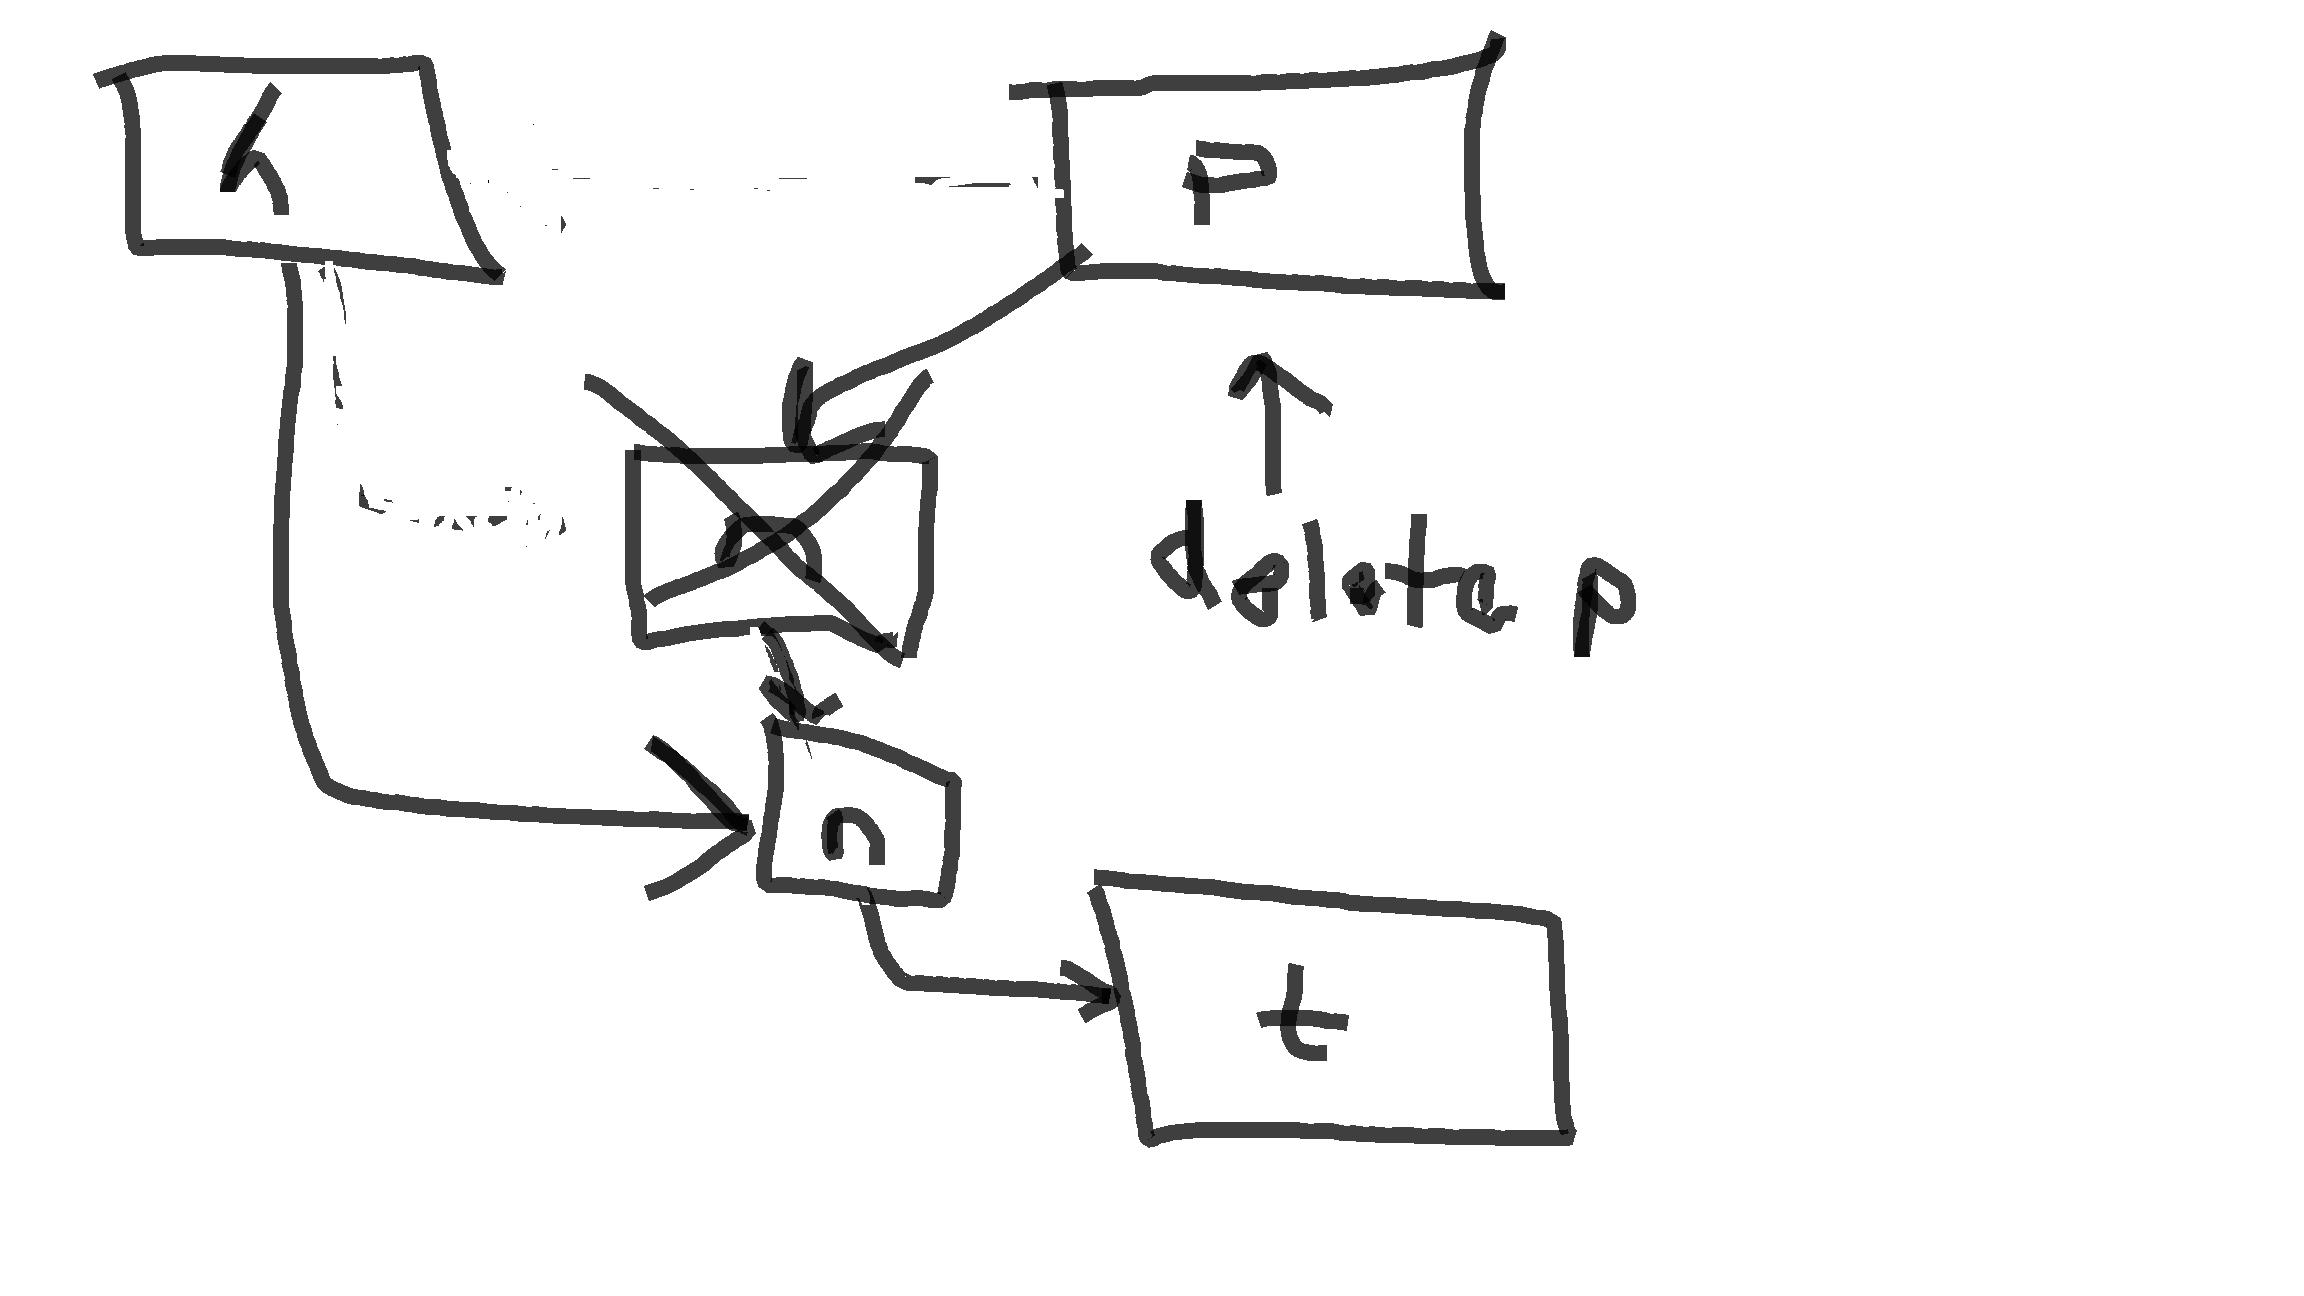 h
p
n
delete p
n
t